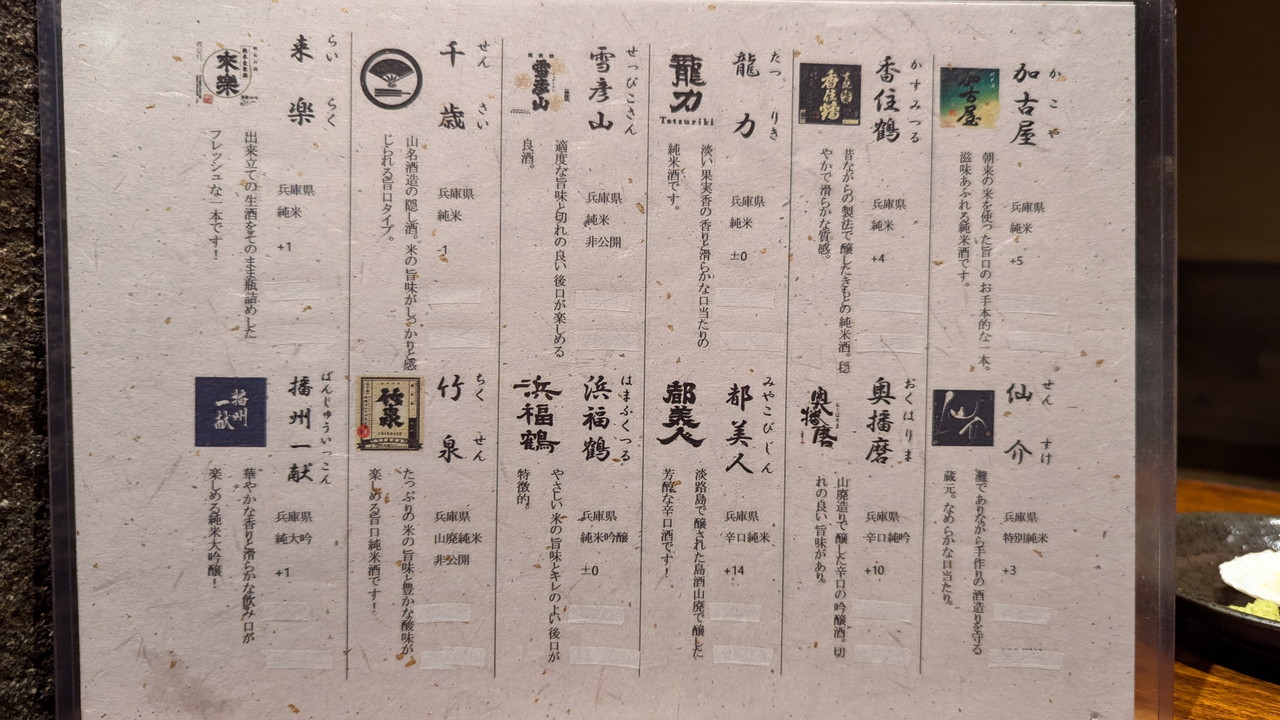 加古屋
かこや
加古屋
兵庫県
純米
+5
朝来の米を使った旨口のお手本的な一本。
滋味あふれる純米酒です。
香住鶴
かすみつる
香住鶴
兵庫県
純米
+4
昔ながらの製法で醸したきもとの純米酒。穏
やかで滑らかな質感。
龍力
たつりき
龍力
Tatsuriki
兵庫県
純米
±0
淡い果実香の香りと滑らかな口当たりの
純米酒です。
雪彦山
せっぴこさん
雪彦山
兵庫県
純米
非公開
適度な旨味と切れの良い後口が楽しめる
良酒。
千歳
せんさい
兵庫県
純米
-1
山名酒造の隠し酒。米の旨味がしっかりと感
じられる旨口タイプ。
来楽
らいらく
來樂
兵庫県
純米
+1
出来立ての生酒をそのまま瓶詰めした
フレッシュな一本です！
仙介
せんすけ
仙介
兵庫県
特別純米
+3
灘でありながら手作りの酒造りを守る
蔵元。なめらかな口当たり。
奥播磨
おくはりま
奥播磨
兵庫県
辛口純吟
+10
山廃造りで醸した辛口の吟醸酒。切
れの良い旨味があり。
都美人
みやこびじん
都美人
兵庫県
辛口純米
+14
淡路島で醸された島酒山廃で醸した
芳醇な辛口酒です！
浜福鶴
はまふくつる
浜福鶴
兵庫県
純米吟醸
±0
やさしい米の旨味とキレのよい後口が
特徴的。
竹泉
ちくせん
竹泉
兵庫県
山廃純米
非公開
たっぷりの米の旨味と豊かな酸味が
楽しめる旨口純米酒です！
播州一献
ばんじゅういっこん
播州一献
兵庫県
純大吟
+1
華やかな香りと滑らかな飲み口が
楽しめる純米大吟醸！